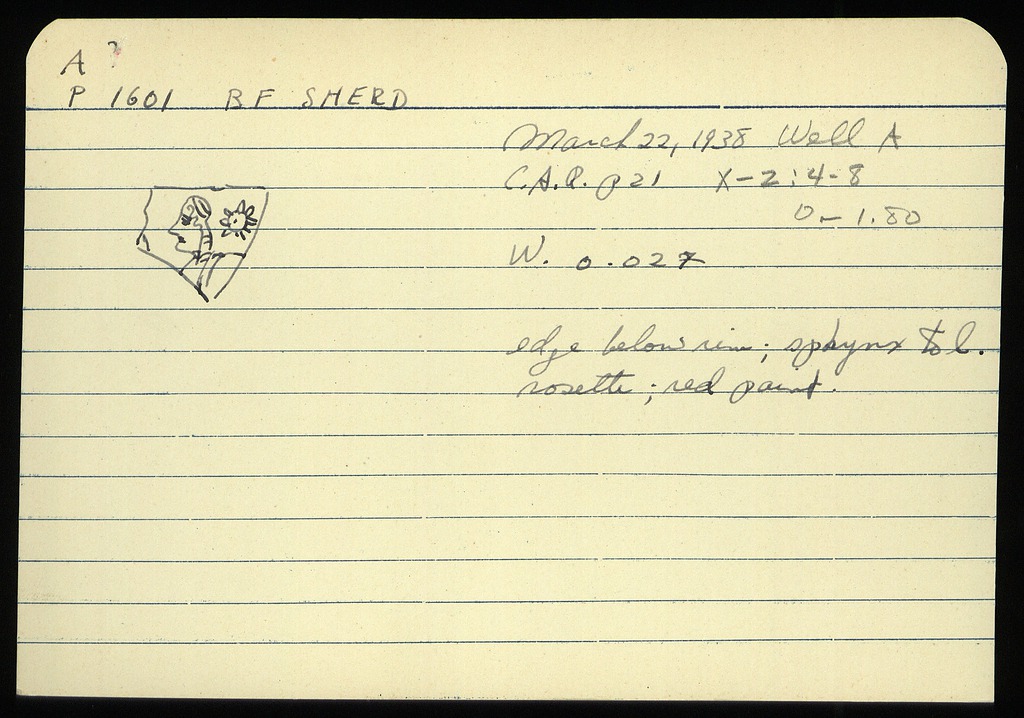 A ?
P 1601 BF SHERD
March 22, 1938 Well A
C.A.R. p 21 X-2:4-8
0-1.80
W. 0.027
edge below rim; sphynx to l.
rosette; red paint.